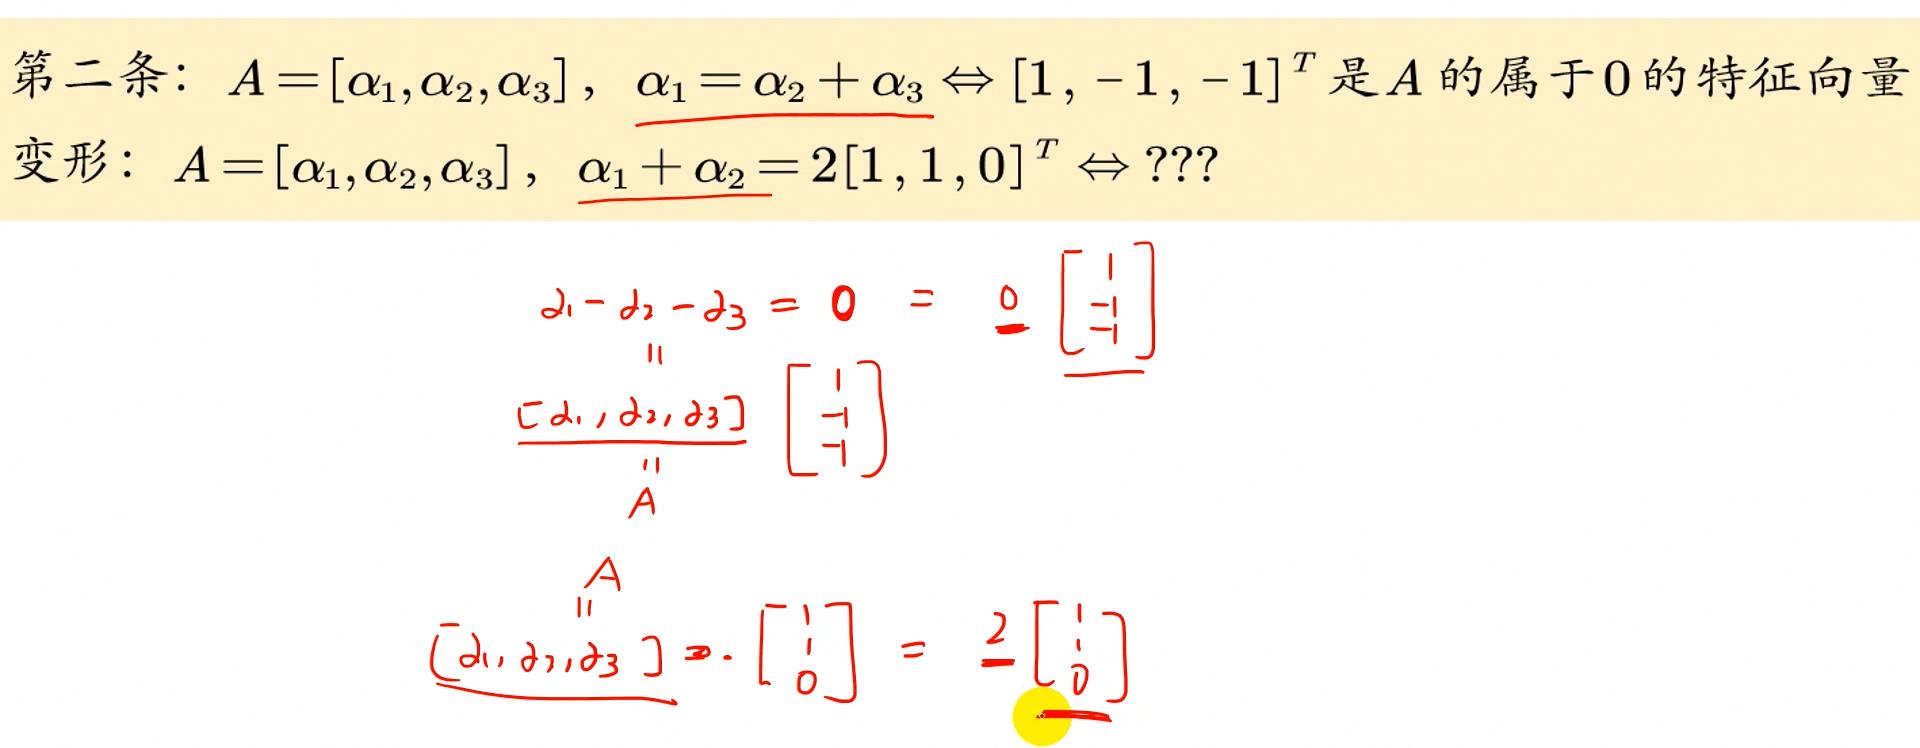 第二条：A=[α₁,α₂,α₃]，α₁=α₂+α₃⇔[1,-1,-1]ᵀ是A的属于0的特征向量
变形：A=[α₁,α₂,α₃]，α₁+α₂=2[1,1,0]ᵀ⇔???
α₁-α₂-α₃=0=0[1 -1 -1]
=
[α₁,α₂,α₃][1 -1 -1]
=
A
A
=
[α₁,α₂,α₃]·[1 1 0]=2[1 1 0]